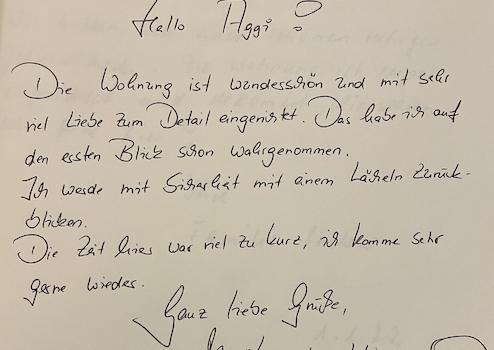 Hallo Aggi !
Die Wohnung ist wunderschön und mit sehr
viel Liebe zum Detail eingerichtet. Das habe ich auf
den ersten Blick schon wahrgenommen.
Ich werde mit Sicherheit mit einem Lächeln zurück-
blicken.
Die Zeit hier war viel zu kurz, ich komme sehr
gerne wieder.
Ganz liebe Grüße,